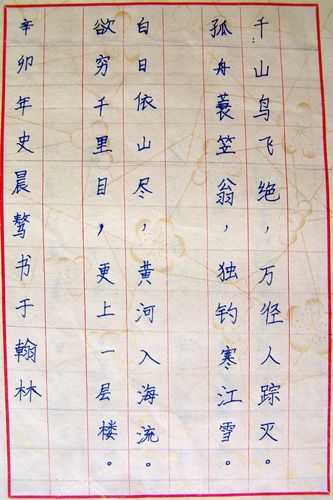 千山鸟飞绝，万径人踪灭。
孤舟蓑笠翁，独钓寒江雪。
白日依山尽，黄河入海流。
欲穷千里目，更上一层楼。
辛卯年史晨骜书于翰林